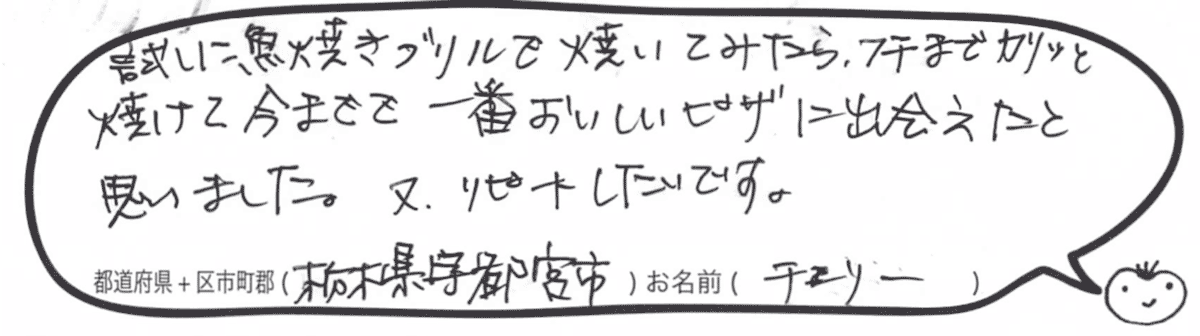 試しに、魚焼きグリルで焼いてみたら、フチまでカリッと
焼けて今までで一番おいしいピザに出会えたと
思いました。又、リピートしたいです。
都道府県+区市町郡(栃木県宇都宮市)お名前(チェリー)